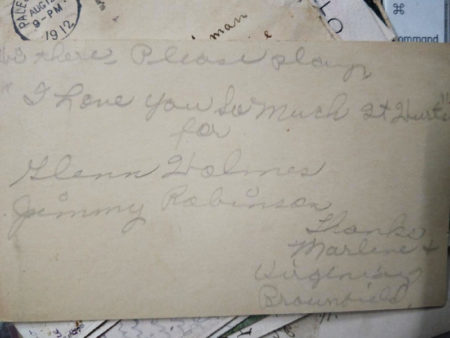 PALE
AUG 12
9-PM
1912
man
LO
⌘
command
Hi there Please play
"I Love You So Much It Hurts"
for
Glenn Holmes
Jimmy Robinson
Thanks
Marlene &
Virginia
Brownfield